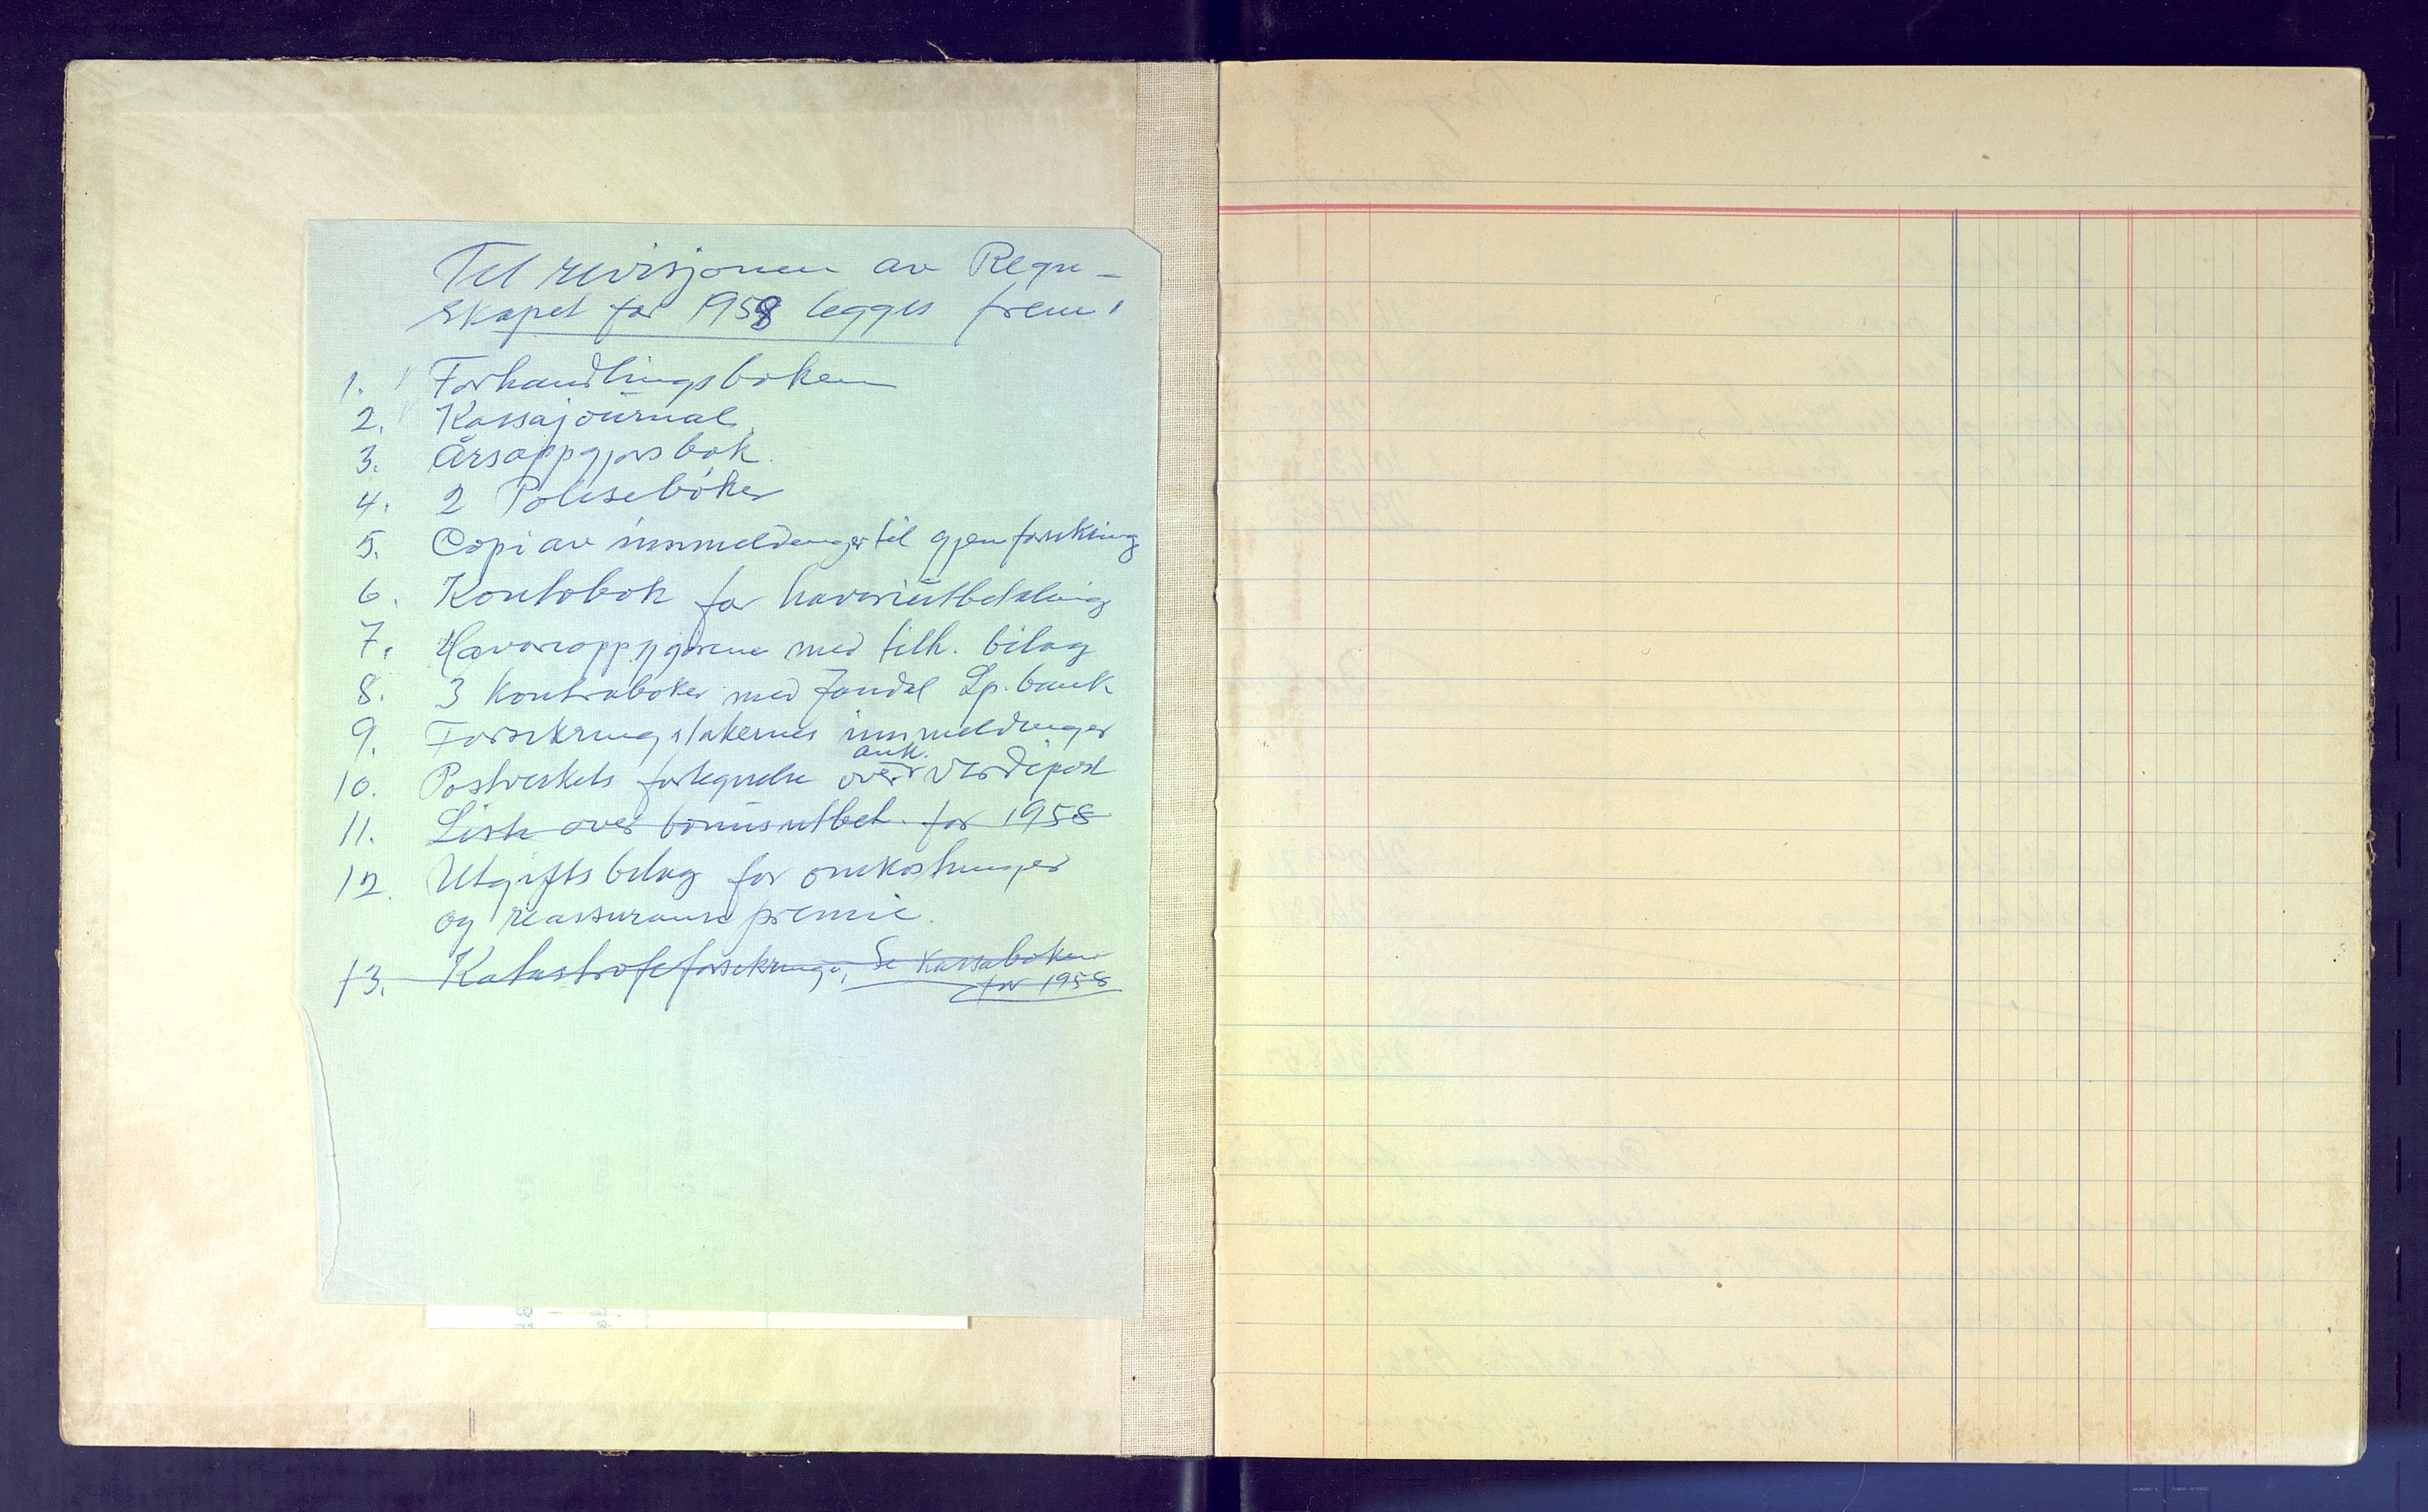 Til revisjonen av Regn-
skapet for 1958 legges frem:
1. Forhandlingsboken
2. Kassajournal
3. Årsoppgjørsbok
4. 2 Polisebøker
5. Copi av innmeldinger til gjenforsikring
6. Kontobok for havariutbetaling
7. Havarioppgjørene med tilh. bilag
8. 3 kontrabøker med Sp.bank
9. Forsikringstakernes innmeldinger
ank.
10. Postverkets fortegnelse over verdipost
11. Liste over bonusutbet. for 1958
12. Utgiftsbilag for omkostninger
og reassuranse premie.
13. Katastrofeforsikringa, Se Kassaboken
for 1958